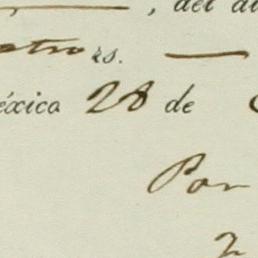 , del
rs.
éxico 28 de
Por